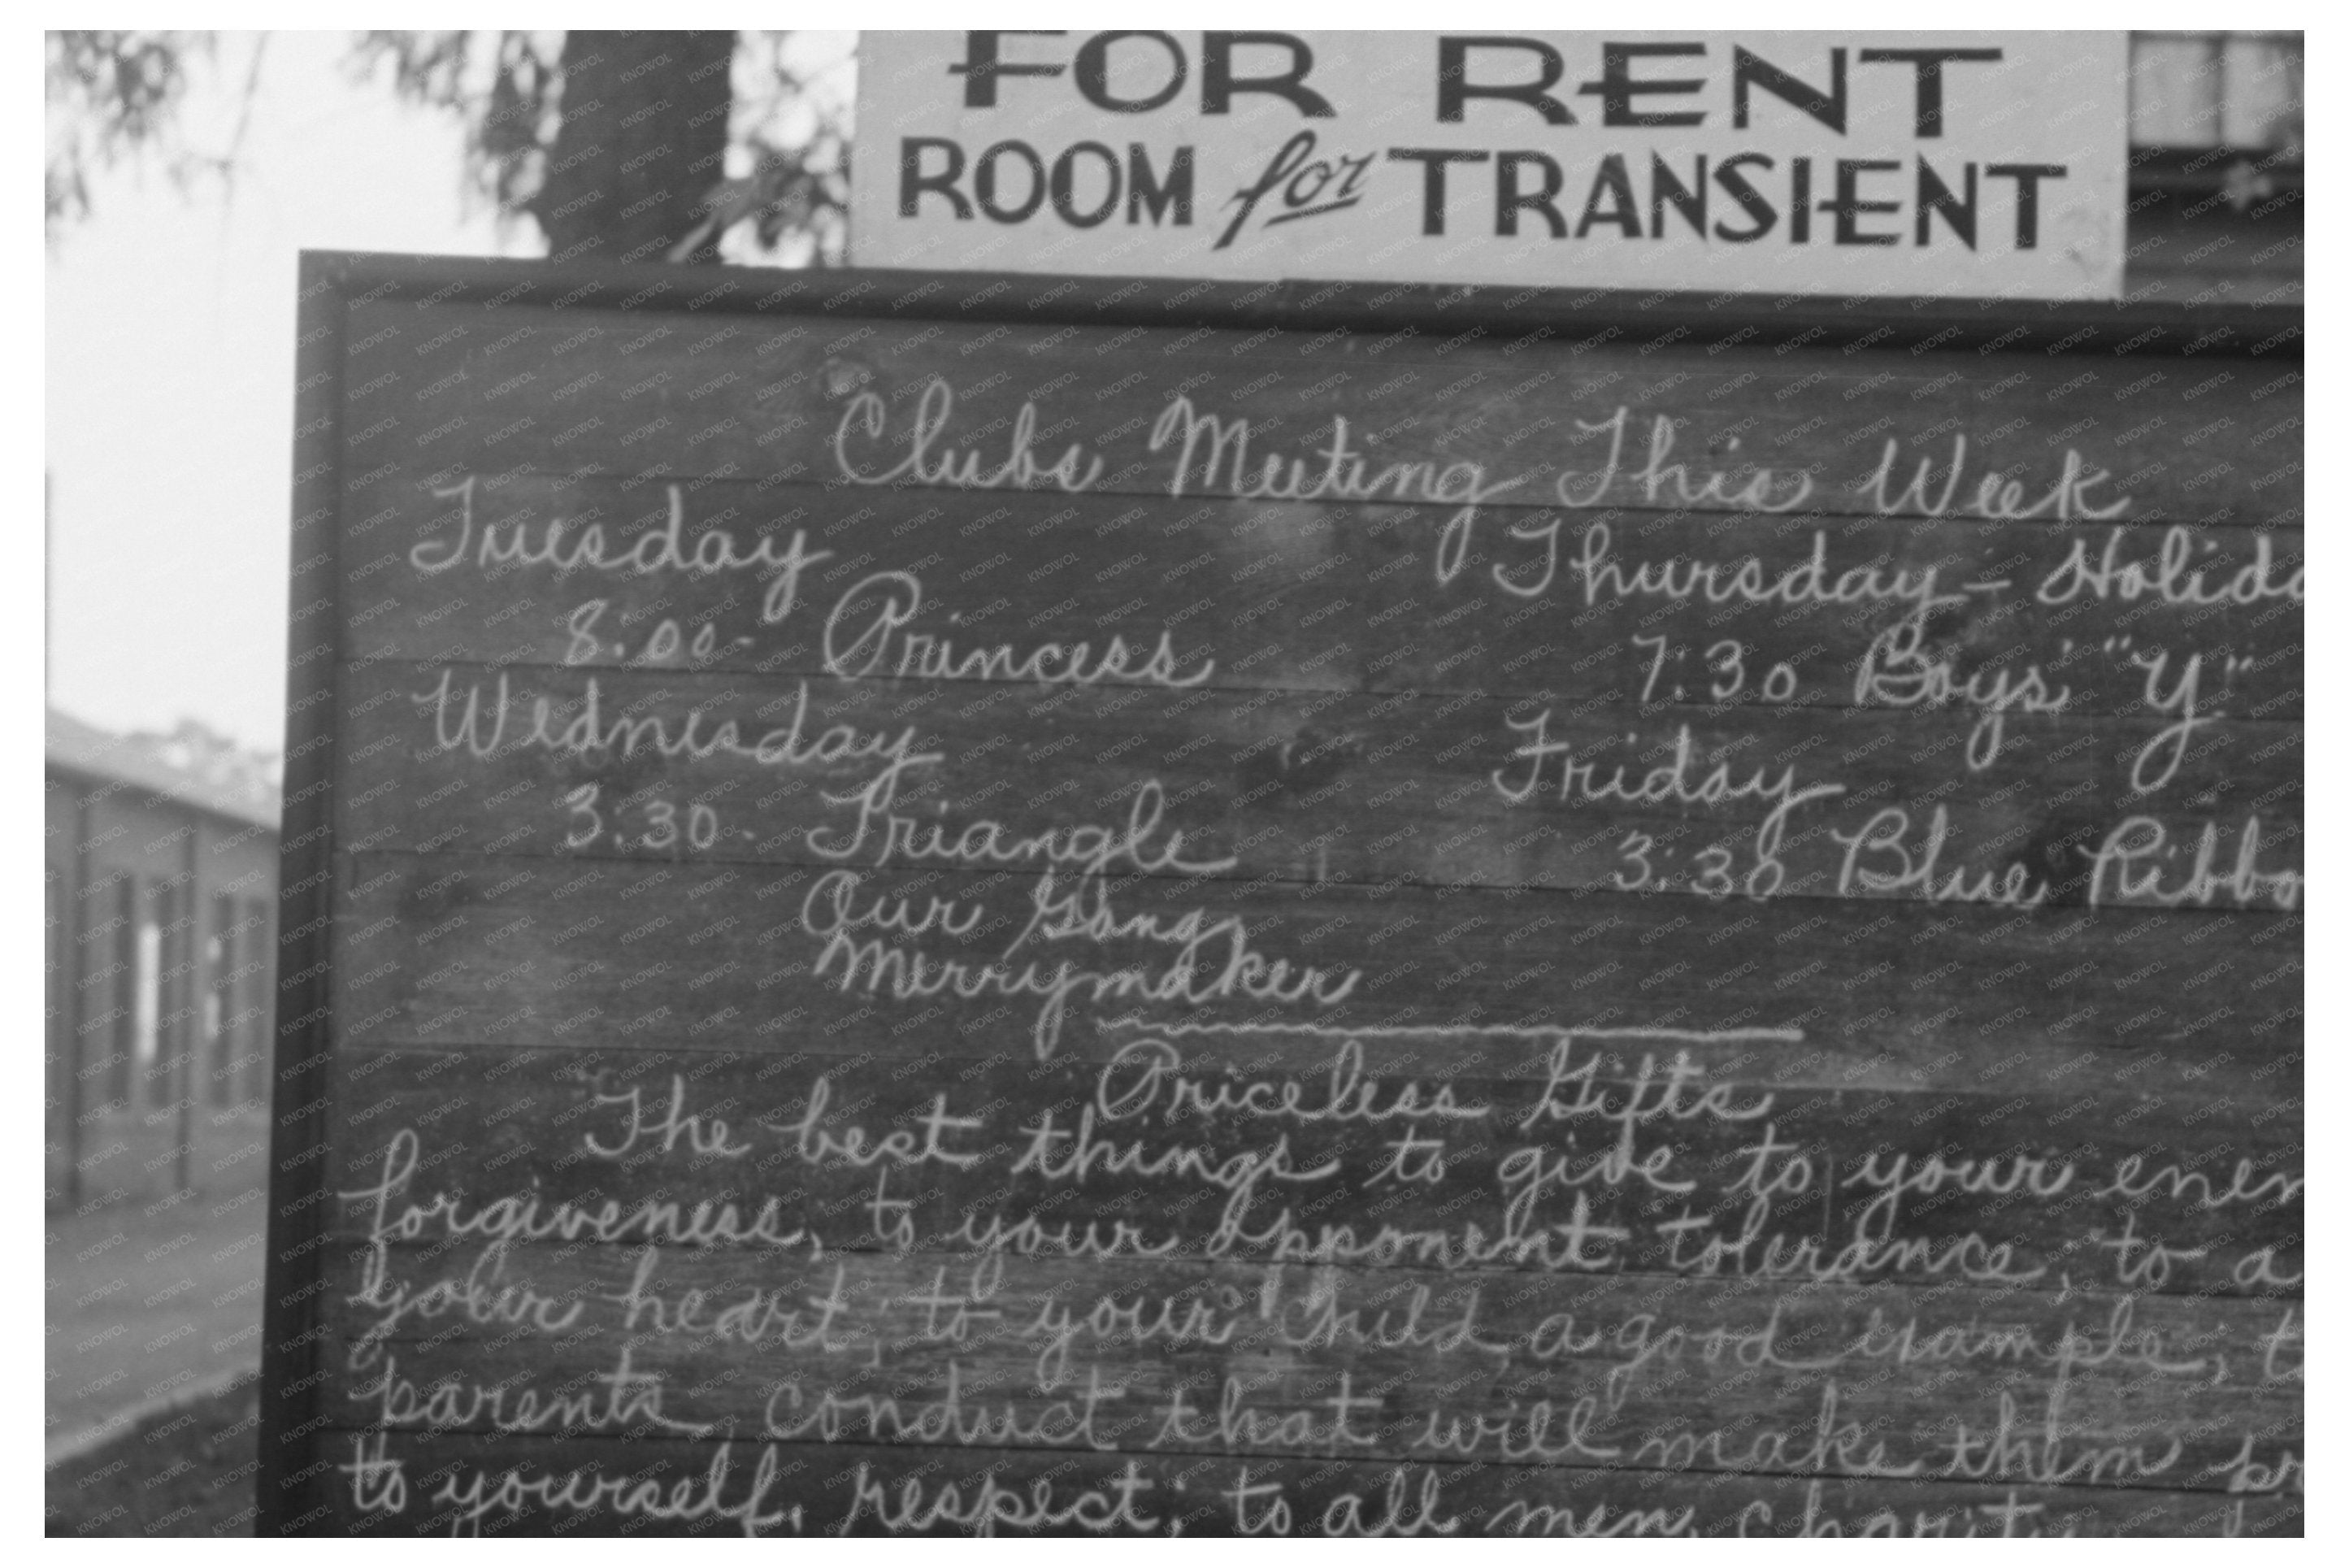 FOR RENT
ROOM for TRANSIENT
Clubs Meeting This Week
Tuesday
8:00- Princess
Wednesday
3:30- Triangle
Our Gang
Merrymaker
Thursday - Holida
7:30 Boys' "Y."
Friday
3:30 Blue Ribbo
Priceless Gifts
The best things to give to your enem
forgiveness, to your opponent, tolerance; to a
your heart; to your child, a good example; t
parents, conduct that will make them pr
to yourself, respect; to all men, charity
KNOWOL